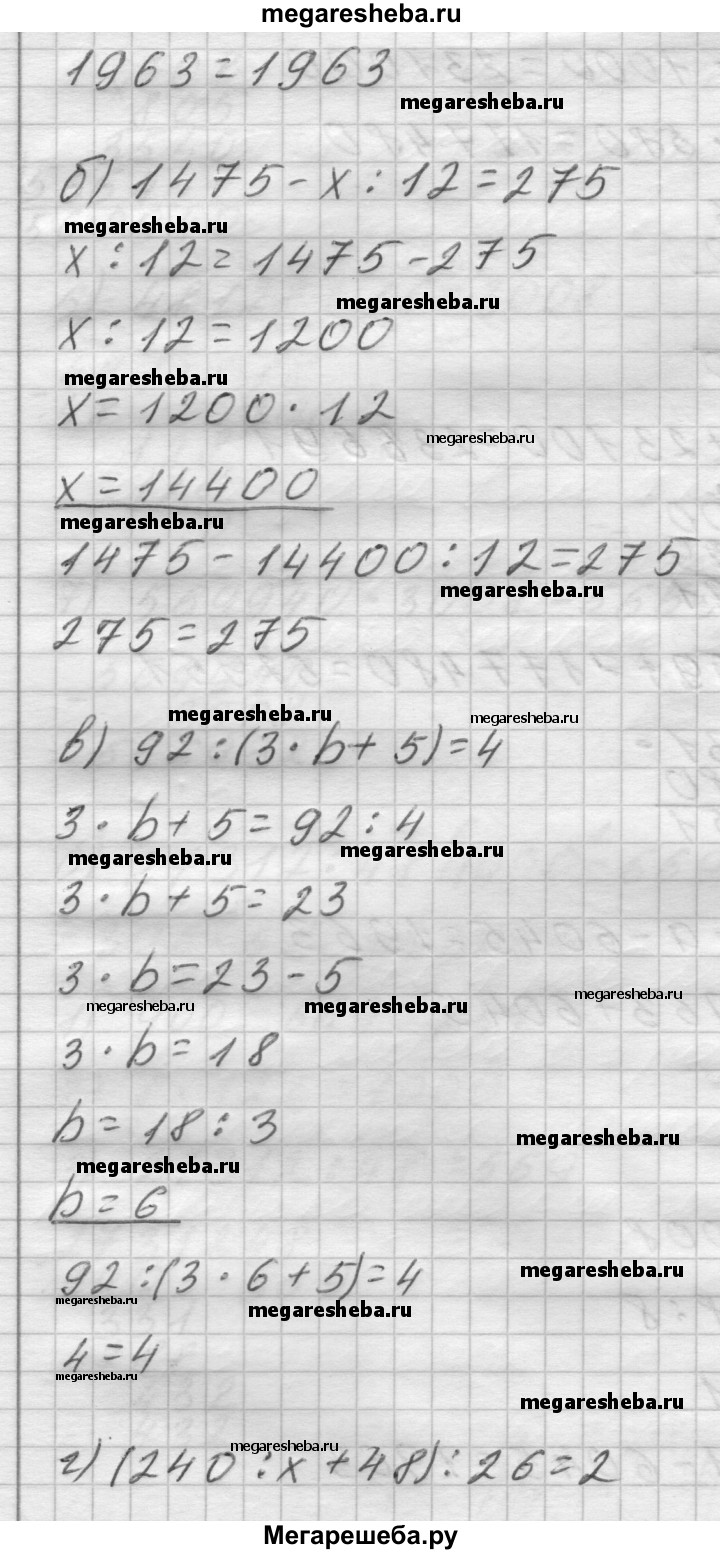 megaresheba.ru
1963=1963
megaresheba.ru
б) 1475-x:12=275
megaresheba.ru
x:12=1475-275
megaresheba.ru
x:12=1200
megaresheba.ru
x=1200·12
megaresheba.ru
x=14400
megaresheba.ru
1475-14400:12=275
megaresheba.ru
275=275
megaresheba.ru megaresheba.ru
в) 92:(3·b+5)=4
3·b+5=92:4
megaresheba.ru megaresheba.ru
3·b+5=23
3·b=23-5
megaresheba.ru megaresheba.ru megaresheba.ru
3·b=18
b=18:3
megaresheba.ru
megaresheba.ru
b=6
92:(3·6+5)=4
megaresheba.ru
megaresheba.ru megaresheba.ru
4=4
megaresheba.ru
megaresheba.ru
megaresheba.ru
г) (240:x+48):26=2
Мегарешеба.ру